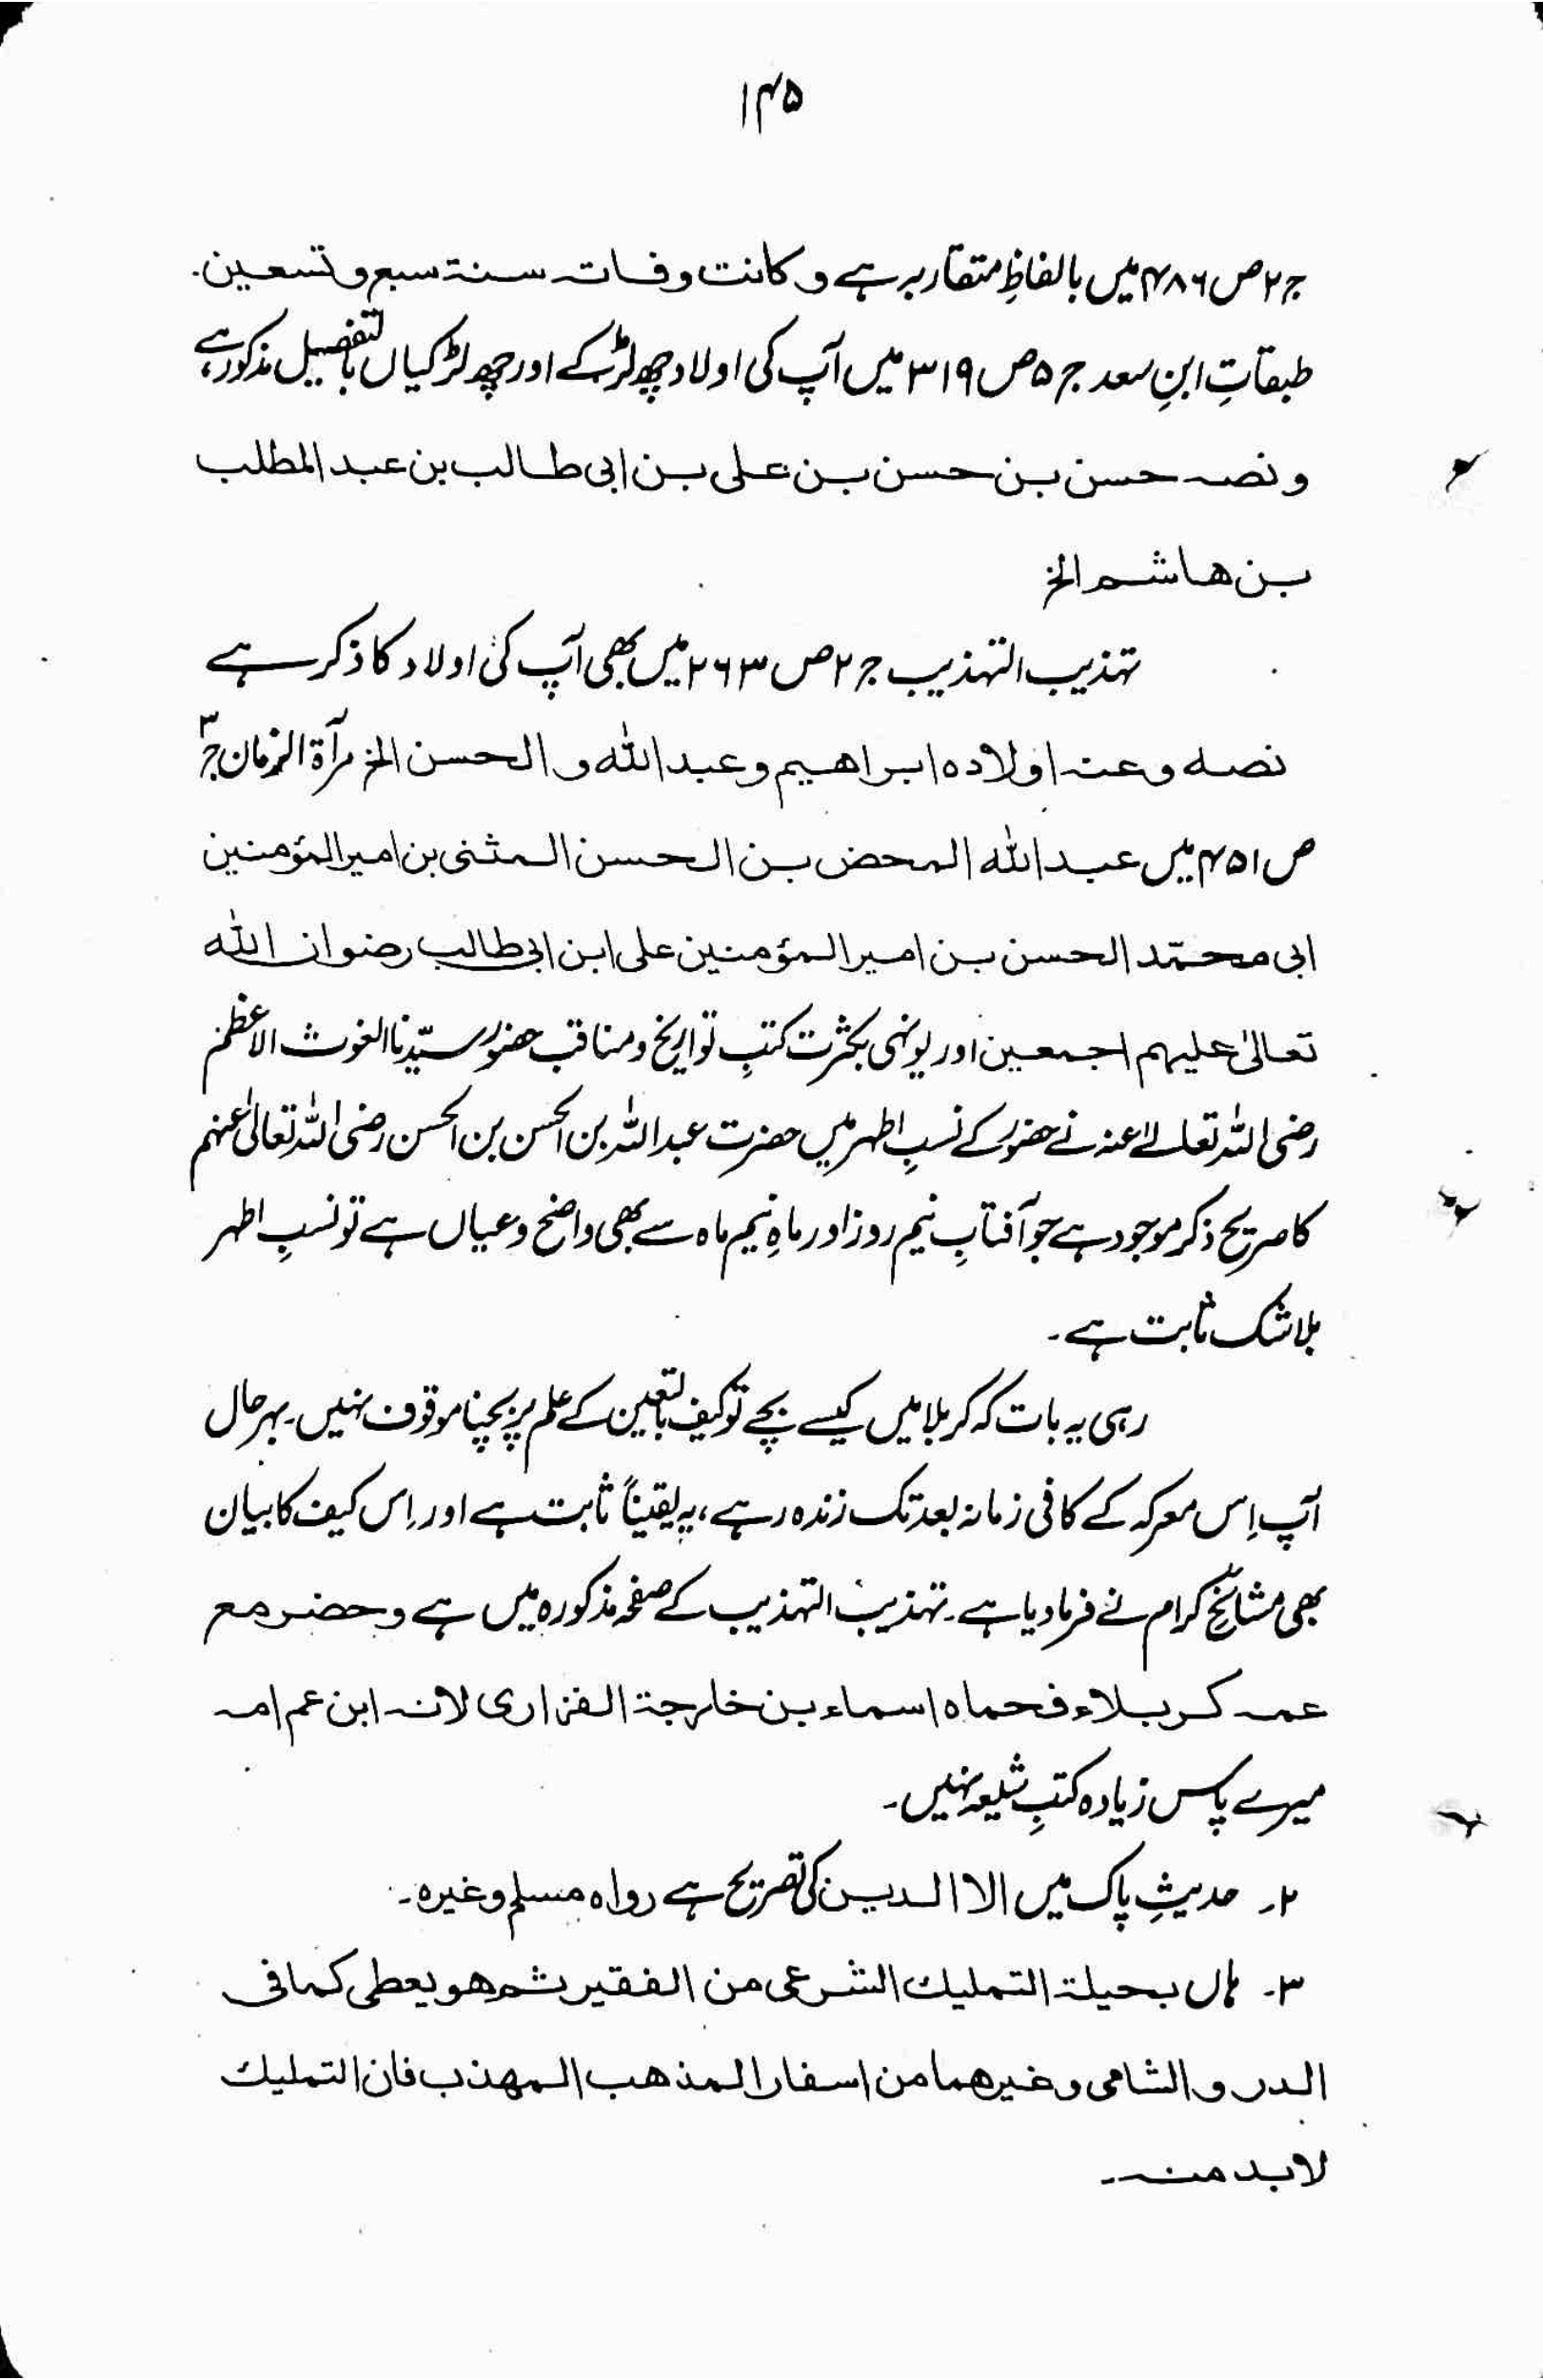 ۱۴۵
ج ۲ ص ۴۸۶ میں بالفاظِ متقاربہ ہے و کانت وفاتہ سنۃ سبع و تسعین۔
طبقاتِ ابنِ سعد ج ۵ ص ۳۱۹ میں آپ کی اولاد چھ لڑکے اور چھ لڑکیاں بالتفصیل مذکور ہے
و نصہ حسن بن حسن بن علی بن ابی طالب بن عبد المطلب
بن ھاشم الخ
تہذیب التہذیب ج ۲ ص ۲۶۳ میں بھی آپ کی اولاد کا ذکر ہے
نصہ وعنہ اولادہ ابراھیم و عبد اللہ و الحسن الخ مرآۃ الزمان ج ۳
ص ۴۵۱ میں عبد اللہ المحض بن الحسن المثنی بن امیر المؤمنین
ابی محمّد الحسن بن امیر المؤمنین علی ابن ابی طالب رضوان اللہ
تعالیٰ علیہم اجمعین اور یونہی بکثرت کتبِ تواریخ و مناقب حضور سیّدنا الغوث الاعظم
رضی اللہ تعالےٰ عنہ نے حضور کے نسبِ اطہر میں حضرت عبد اللہ بن الحسن بن الحسن رضی اللہ تعالیٰ عنہم
کا صریح ذکر موجود ہے جو آفتابِ نیم روز اور ماہِ نیم ماہ سے بھی واضح و عیاں ہے تو نسبِ اطہر
بلا شک ثابت ہے۔
رہی یہ بات کہ کربلا میں کیسے بچے تو کیف بالتعین کے علم پر بچنا موقوف نہیں۔ بہر حال
آپ اِس معرکہ کے کافی زمانہ بعد تک زندہ رہے، یہ یقیناً ثابت ہے اور اِس کیف کا بیان
بھی مشائخِ کرام نے فرما دیا ہے۔ تہذیب التہذیب کے صفحہ مذکورہ میں ہے و حضر مع
عمہ کربلاء فحماہ اسماء بن خارجۃ الفزاری لانہ ابن عم امہ
میرے پاس زیادہ کتبِ شیعہ نہیں۔
۲۔ حدیثِ پاک میں الا الدین کی تصریح ہے رواہ مسلم وغیرہ۔
۳۔ ہاں بحیلۃ التملیك الشرعی من الفقیر ثم ھو یعطی کما فی
الدر و الشامی و غیرھما من اسفار المذھب المھذب فان التملیك
لابد منہ۔